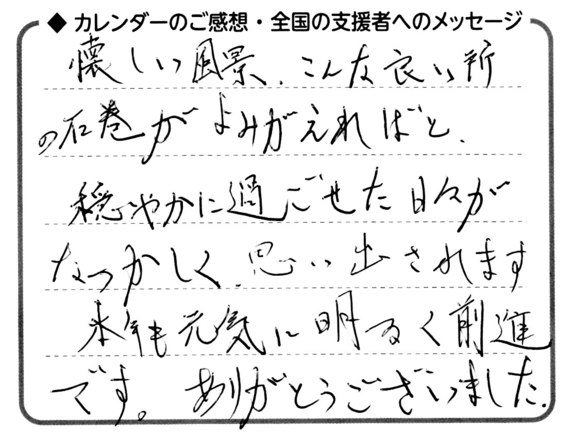 ◆ カレンダーのご感想・全国の支援者へのメッセージ
懐しい風景、こんな良い所
の石巻がよみがえればと、
穏やかに過ごせた日々が
なつかしく、思い出されます
本年も元気に明るく前進
です。ありがとうございました。